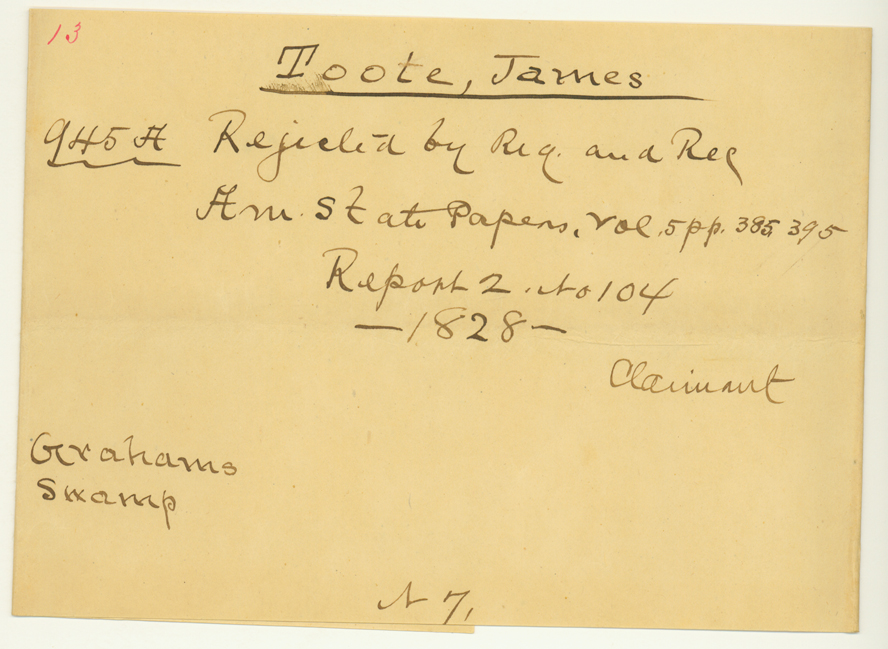 13
Toote, James
945 A Rejected by Reg. and Rec
Am. State Papers, Vol. 5 pp. 385, 395
Report 2. No 104
— 1828 —
Claimant
Grahams
Swamp
N 7,